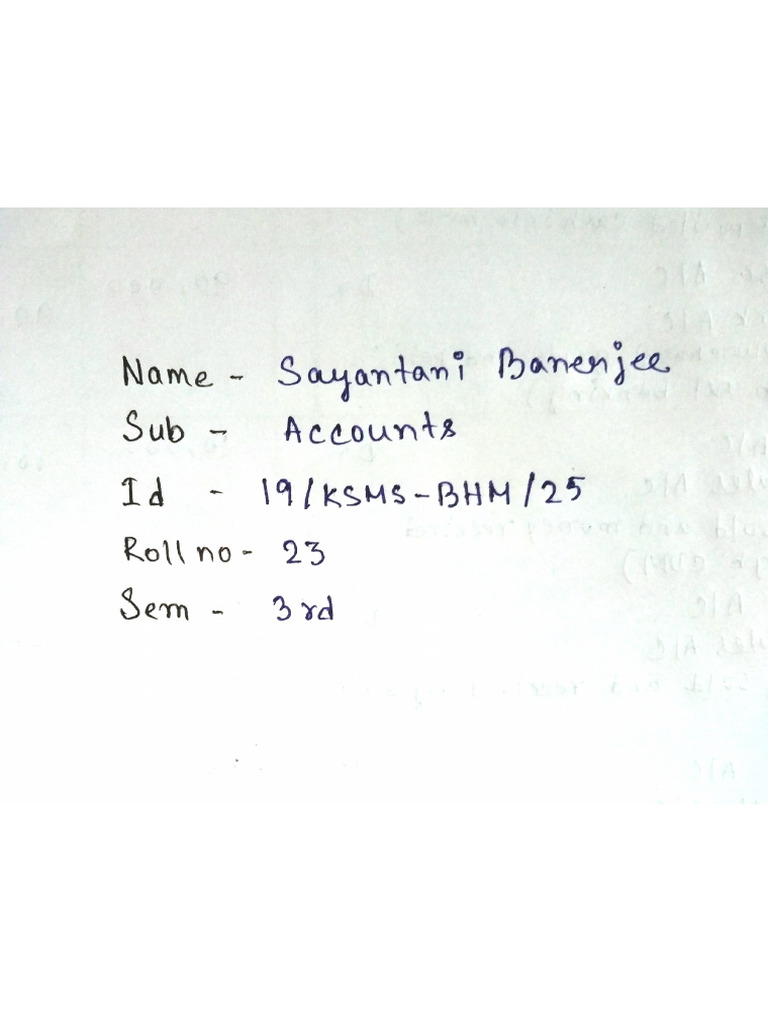 Name - Sayantani Banerjee
Sub - Accounts
Id - 19/KSMS-BHM/25
Roll no - 23
Sem - 3rd